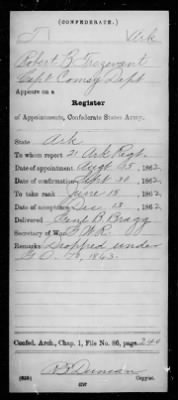 (CONFEDERATE.)
T Ark
Robert B. Trezevant
Capt Comsy Dept
Appears on a
Register
of Appointments, Confederate States Army.
State Ark
To whom report 21 Ark Regt.
Date of appointment Augt 25, 1862
Date of confirmation Sept 30, 1862
To take rank June 18, 1862
Date of acceptance Dec 18, 1862
Delivered Genl B. Bragg
Secretary of War G.W.R.
Remarks Dropped under
G.O. 70, 1863.
Confed. Arch., Chap. 1, File No. 86, page 240
R B Duncan
(635) Copyist.